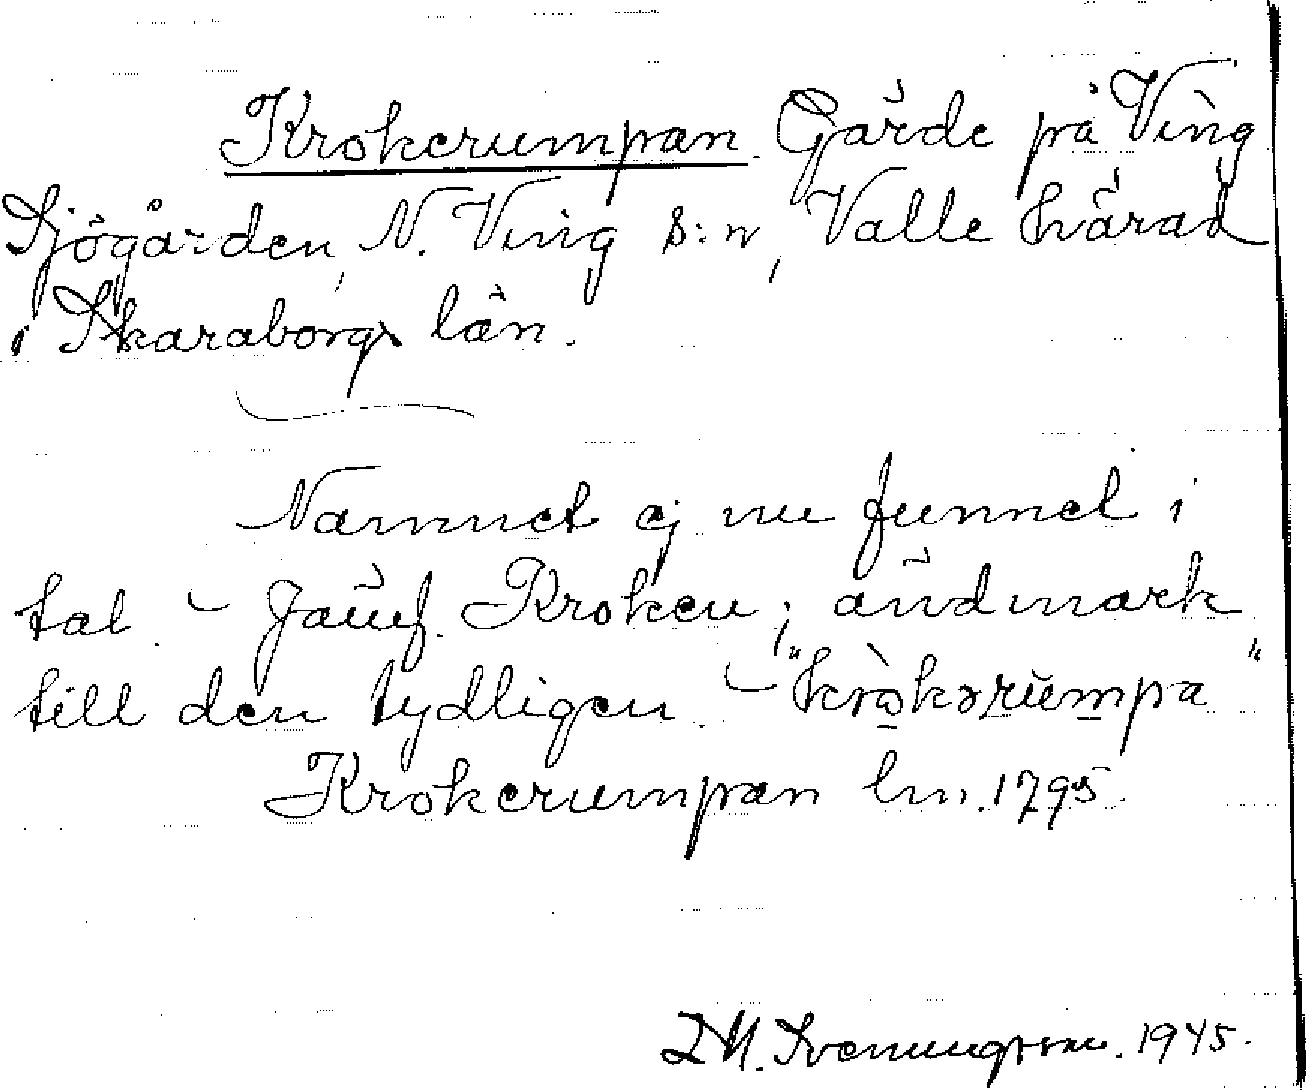 Krokerumpan Gärde på Ving
Sjögården, N. Ving s:n, Valle härad
i Skaraborgs län.
Namnet ej nu funnet i
tal. – Jämf. Kroken; ändmark
till den tydligen. – "kròkərùmpa"
Krokerumpan lm. 1795
M. Svenungsson. 1945.